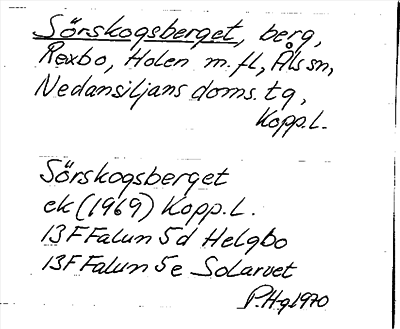 Sörskogsberget, berg,
Rexbo, Holen m. fl, Åls sn,
Nedansiljans doms. tg,
Kopp.l.
Sörskogsberget
ek (1969) Kopp.L.
13F Falun 5d Helgbo
13F Falun 5e Solarvet
P.Hg 1970